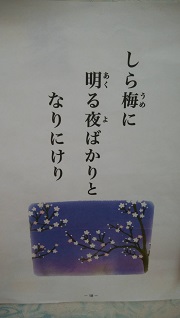 しら梅に
明る夜ばかりと
なりにけり
うめ
あく
よ